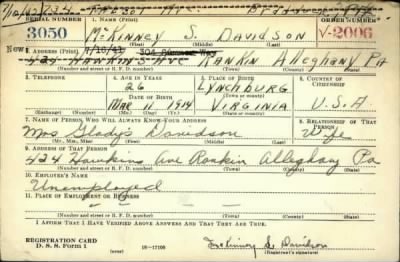 7/10/41 734 TALBOT AVE BRADDOCK PA
SERIAL NUMBER 1. NAME (Print) ORDER NUMBER
3050 McKINNEY S. DAVIDSON V-2006
(First) (Middle) (Last)
New 2. ADDRESS (Print) 7/10/41 304
424 HAWKINS AVE RANKIN Allegheny PA
(Number and street or R. F. D. number) (Town) (County) (State)
3. TELEPHONE 4. AGE IN YEARS 5. PLACE OF BIRTH 6. COUNTRY OF CITIZENSHIP
26 LYNCHBURG
DATE OF BIRTH (Town or county)
MAR 11 1914 VIRGINIA U.S.A
(Exchange) (Number) (Mo.) (Day) (Yr.) (State or country)
7. NAME OF PERSON WHO WILL ALWAYS KNOW YOUR ADDRESS 8. RELATIONSHIP OF THAT PERSON
Mrs Gladys Davidson Wife
(Mr., Mrs., Miss) (First) (Middle) (Last)
9. ADDRESS OF THAT PERSON
424 Hawkins Ave Rankin Alleghany Pa
(Number and street or R. F. D. number) (Town) (County) (State)
10. EMPLOYER'S NAME
Unemployed
11. PLACE OF EMPLOYMENT OR BUSINESS
(Number and street or R. F. D. number) (Town) (County) (State)
I AFFIRM THAT I HAVE VERIFIED ABOVE ANSWERS AND THAT THEY ARE TRUE.
REGISTRATION CARD
D. S. S. Form 1 16—17100 McKinney S. Davidson
(Registrant's signature)